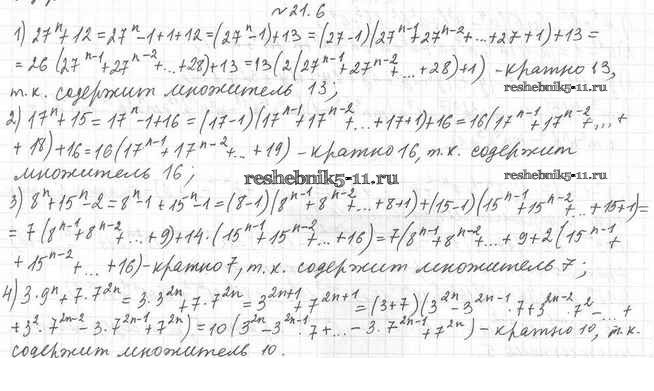 №21.6
1) 27ⁿ+12=27ⁿ-1+1+12=(27ⁿ-1)+13=(27-1)(27ⁿ⁻¹+27ⁿ⁻²+...+27+1)+13=
=26(27ⁿ⁻¹+27ⁿ⁻²+...+28)+13=13(2(27ⁿ⁻¹+27ⁿ⁻²+...+28)+1) -кратно 13,
т.к. содержит множитель 13;
reshebnik5-11.ru
2) 17ⁿ+15=17ⁿ-1+16=(17-1)(17ⁿ⁻¹+17ⁿ⁻²+...+17+1)+16=16(17ⁿ⁻¹+17ⁿ⁻²+...+
+18)+16=16(17ⁿ⁻¹+17ⁿ⁻²+...+19) -кратно 16, т.к. содержит
множитель 16;
reshebnik5-11.ru
3) 8ⁿ+15ⁿ-2=8ⁿ-1+15ⁿ-1=(8-1)(8ⁿ⁻¹+8ⁿ⁻²+...+8+1)+(15-1)(15ⁿ⁻¹+15ⁿ⁻²+...+15+1)=
=7(8ⁿ⁻¹+8ⁿ⁻²+...+9)+14·(15ⁿ⁻¹+15ⁿ⁻²+...+16)=7(8ⁿ⁻¹+8ⁿ⁻²+...+9+2(15ⁿ⁻¹+
+15ⁿ⁻²+...+16)-кратно 7, т.к. содержит множитель 7;
4) 3·9ⁿ+7·7²ⁿ=3·3²ⁿ+7·7²ⁿ=3²ⁿ⁺¹+7²ⁿ⁺¹=(3+7)(3²ⁿ-3²ⁿ⁻¹·7+3²ⁿ⁻²·7²-...+
+3²·7²ⁿ⁻²-3·7²ⁿ⁻¹+7²ⁿ)=10(3²ⁿ-3²ⁿ⁻¹·7+...-3·7²ⁿ⁻¹+7²ⁿ)-кратно 10, т.к.
содержит множитель 10.
reshebnik5-11.ru